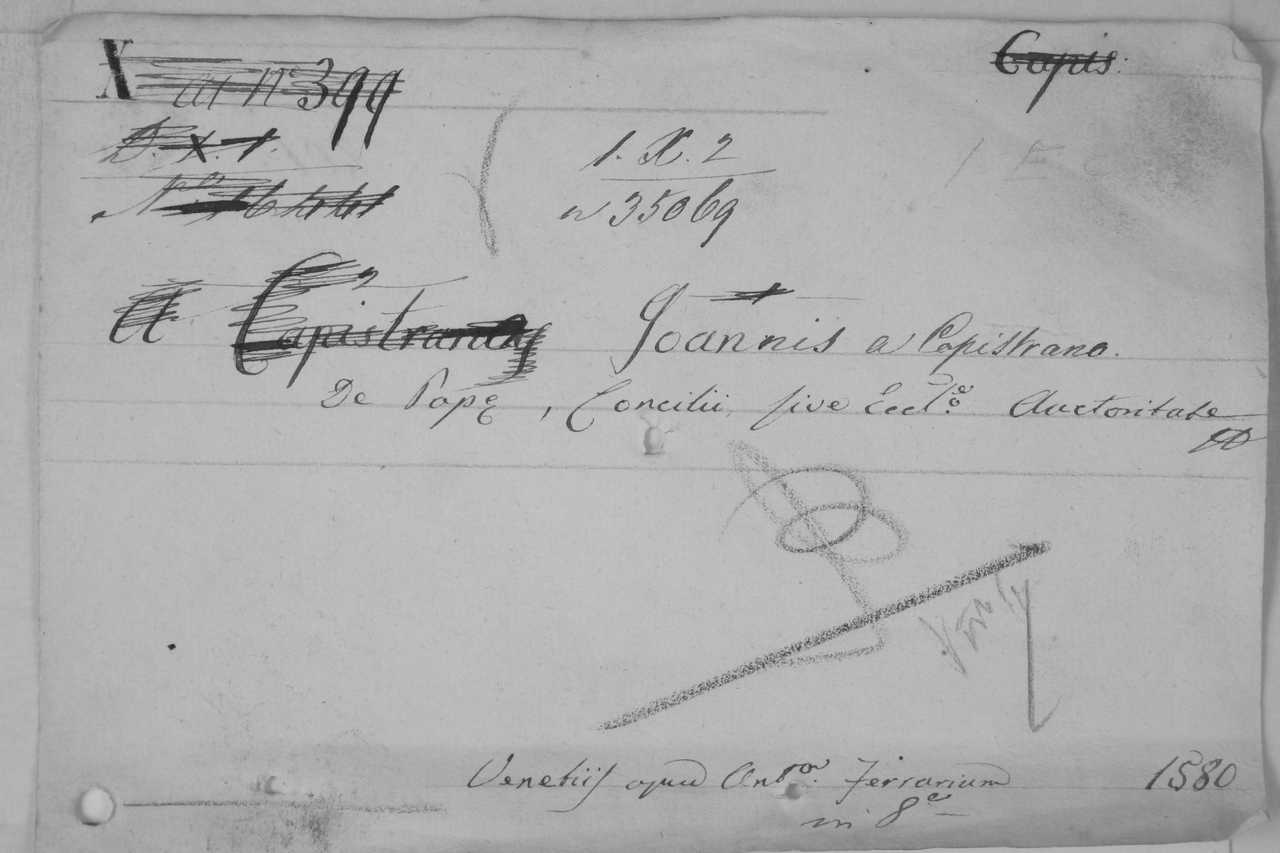 X ar n 399
Capis.
D. X. 1.
1. X. 2
n 35069
A Capistranus
Joannis a Capistrano.
De Papę, Concilii, sive Eccl.ᵉ Auctoritate
Venetiis apud Ant.ᵒⁿ Ferrarium 1580
in 8.ᵒ